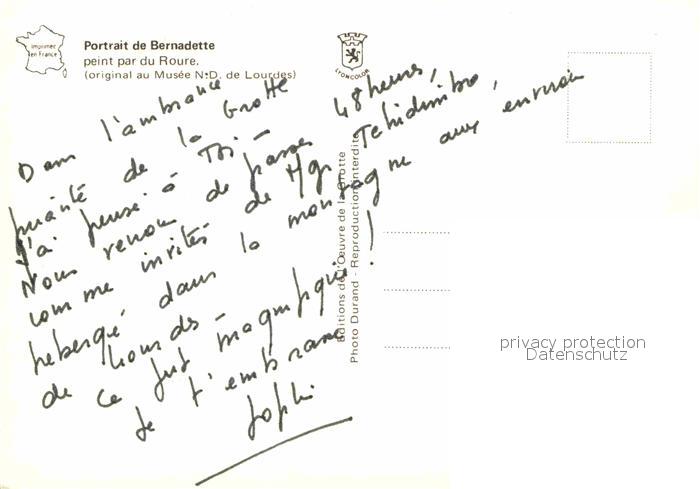 imprimée
en France
Portrait de Bernadette
peint par du Roure.
(original au Musée N.D. de Lourdes)
LYONCOLOR
Dans l'ambiance
priante de la Grotte
j'ai pensé à Toi -
Nous venons de passer 48 heures,
comme invités de Mgr Tchidimbo,
hébergé dans la montagne aux environs
de Lourdes -
Ce fut magnifique !
Je t'embrasse
Sophie
Editions de l'Œuvre de la Grotte
Photo Durand - Reproduction interdite
privacy protection
Datenschutz